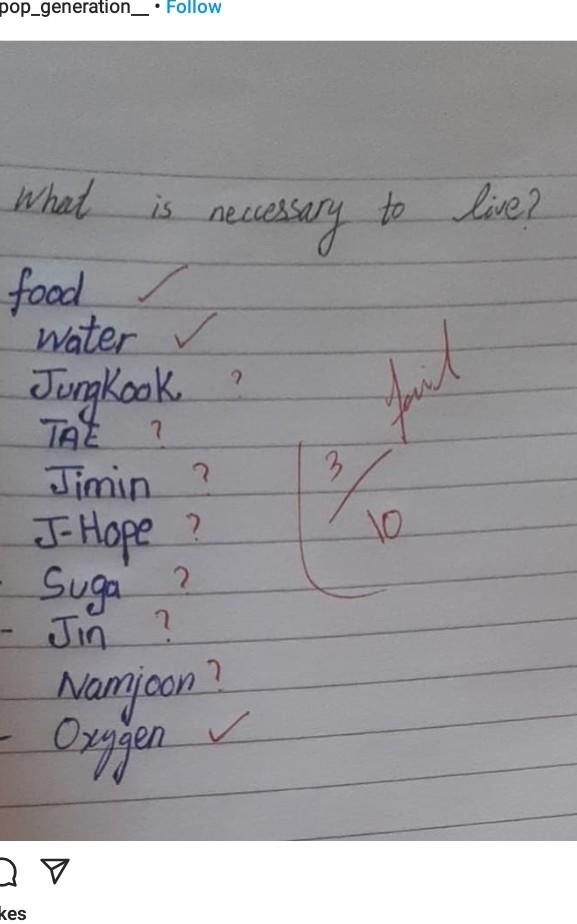 pop_generation__ • Follow
What is neccessary to live?
food ✓
water ✓
JungKook ?
TAE ?
Jimin ?
J-Hope ?
- Suga ?
- Jin ?
Namjoon ?
- Oxygen ✓
fail
3/10
kes